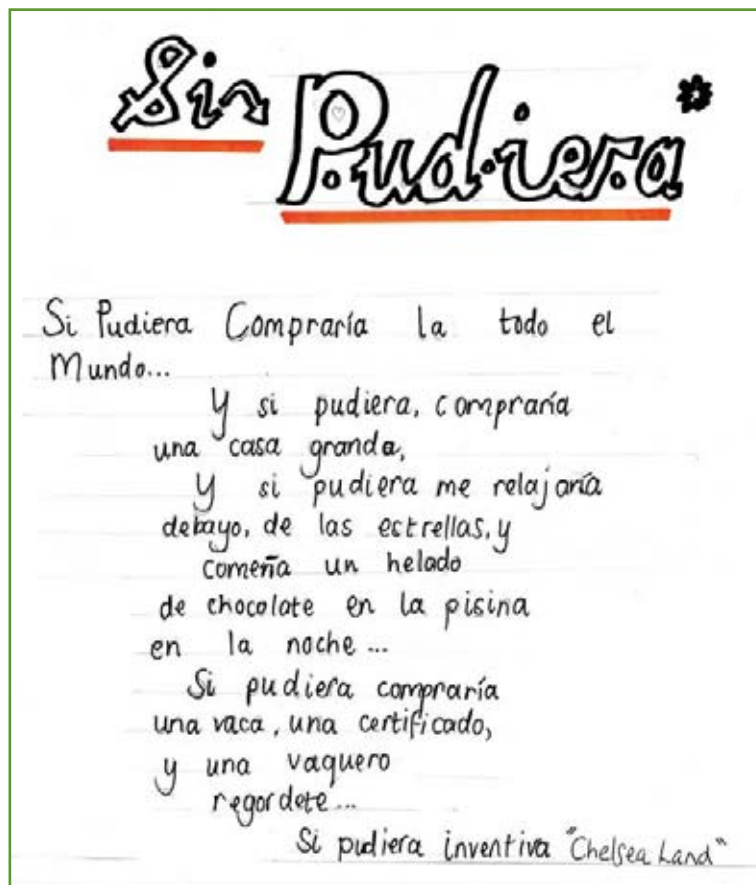 Si
Pudiera*
Si Pudiera Compraría la todo el
Mundo...
Y si pudiera, compraría
una casa grande,
Y si pudiera me relajaría
debayo, de las estrellas, y
comeria un helado
de chocolate en la pisina
en la noche...
Si pudiera compraría
una vaca, una certificado,
y una vaquero
regordete...
Si pudiera inventiva "Chelsea Land"